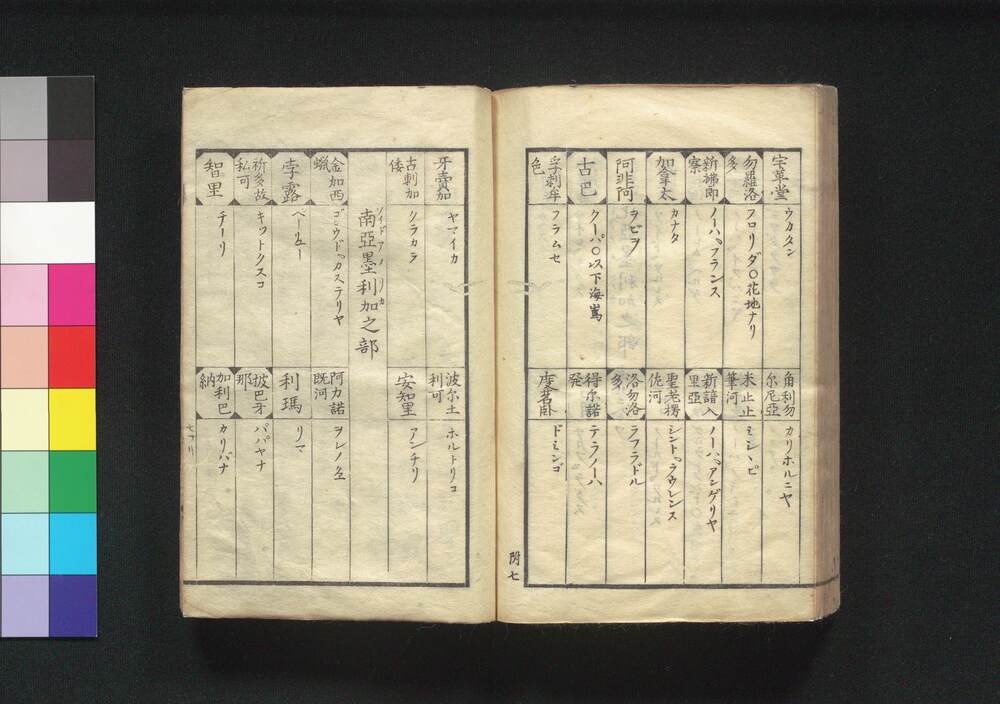 宇革堂 ウカタン
勿羅洛多 フロリダ〇花地ナリ
新拂郎察 ノーハ、フランス
加拿太 カナタ
阿非阿 ヲビヲ
古巴 クーパ〇以下海嶌
孚剌牟色 フラムセ
角利勿尔尼亞 カリホルニヤ
未止止筆河 ミシヽピ
新諳入里亞 ノーハ、アンゲリヤ
聖老楞佐河 シント、ラウレンス
洛勿洛多 ラフラドル
得尔諾発 テラノーハ
度茗卧 ドミンゴ
附七
牙賣加 ヤマイカ
古剌加倭 クラカラ
南亞墨利加之部
金加西蠟 ゴウド、カステリヤ
孛露 ペーリュー
祈多故私可 キットクスコ
智里 チーリ
波尔土利可 ホルトリコ
安知里 アンチリ
阿力諾既河 ヲレノコ
利瑪 リマ
披巴牙那 パパヤナ
加利巴納 カリバナ